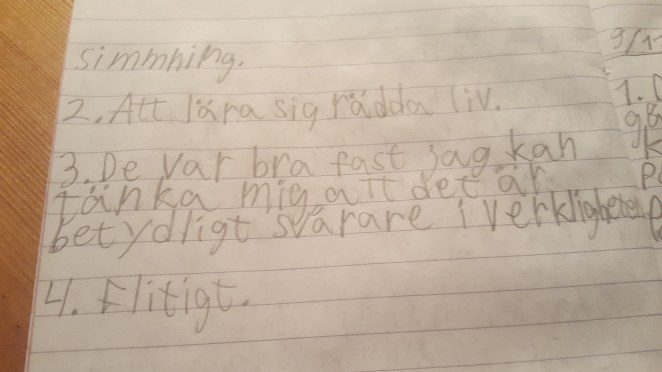 simmning.
2. Att lära sig rädda liv.
3. De var bra fast jag kan
tänka mig att det är
betydligt svårare i verkligheten
4. Flitigt.
9/1
1.